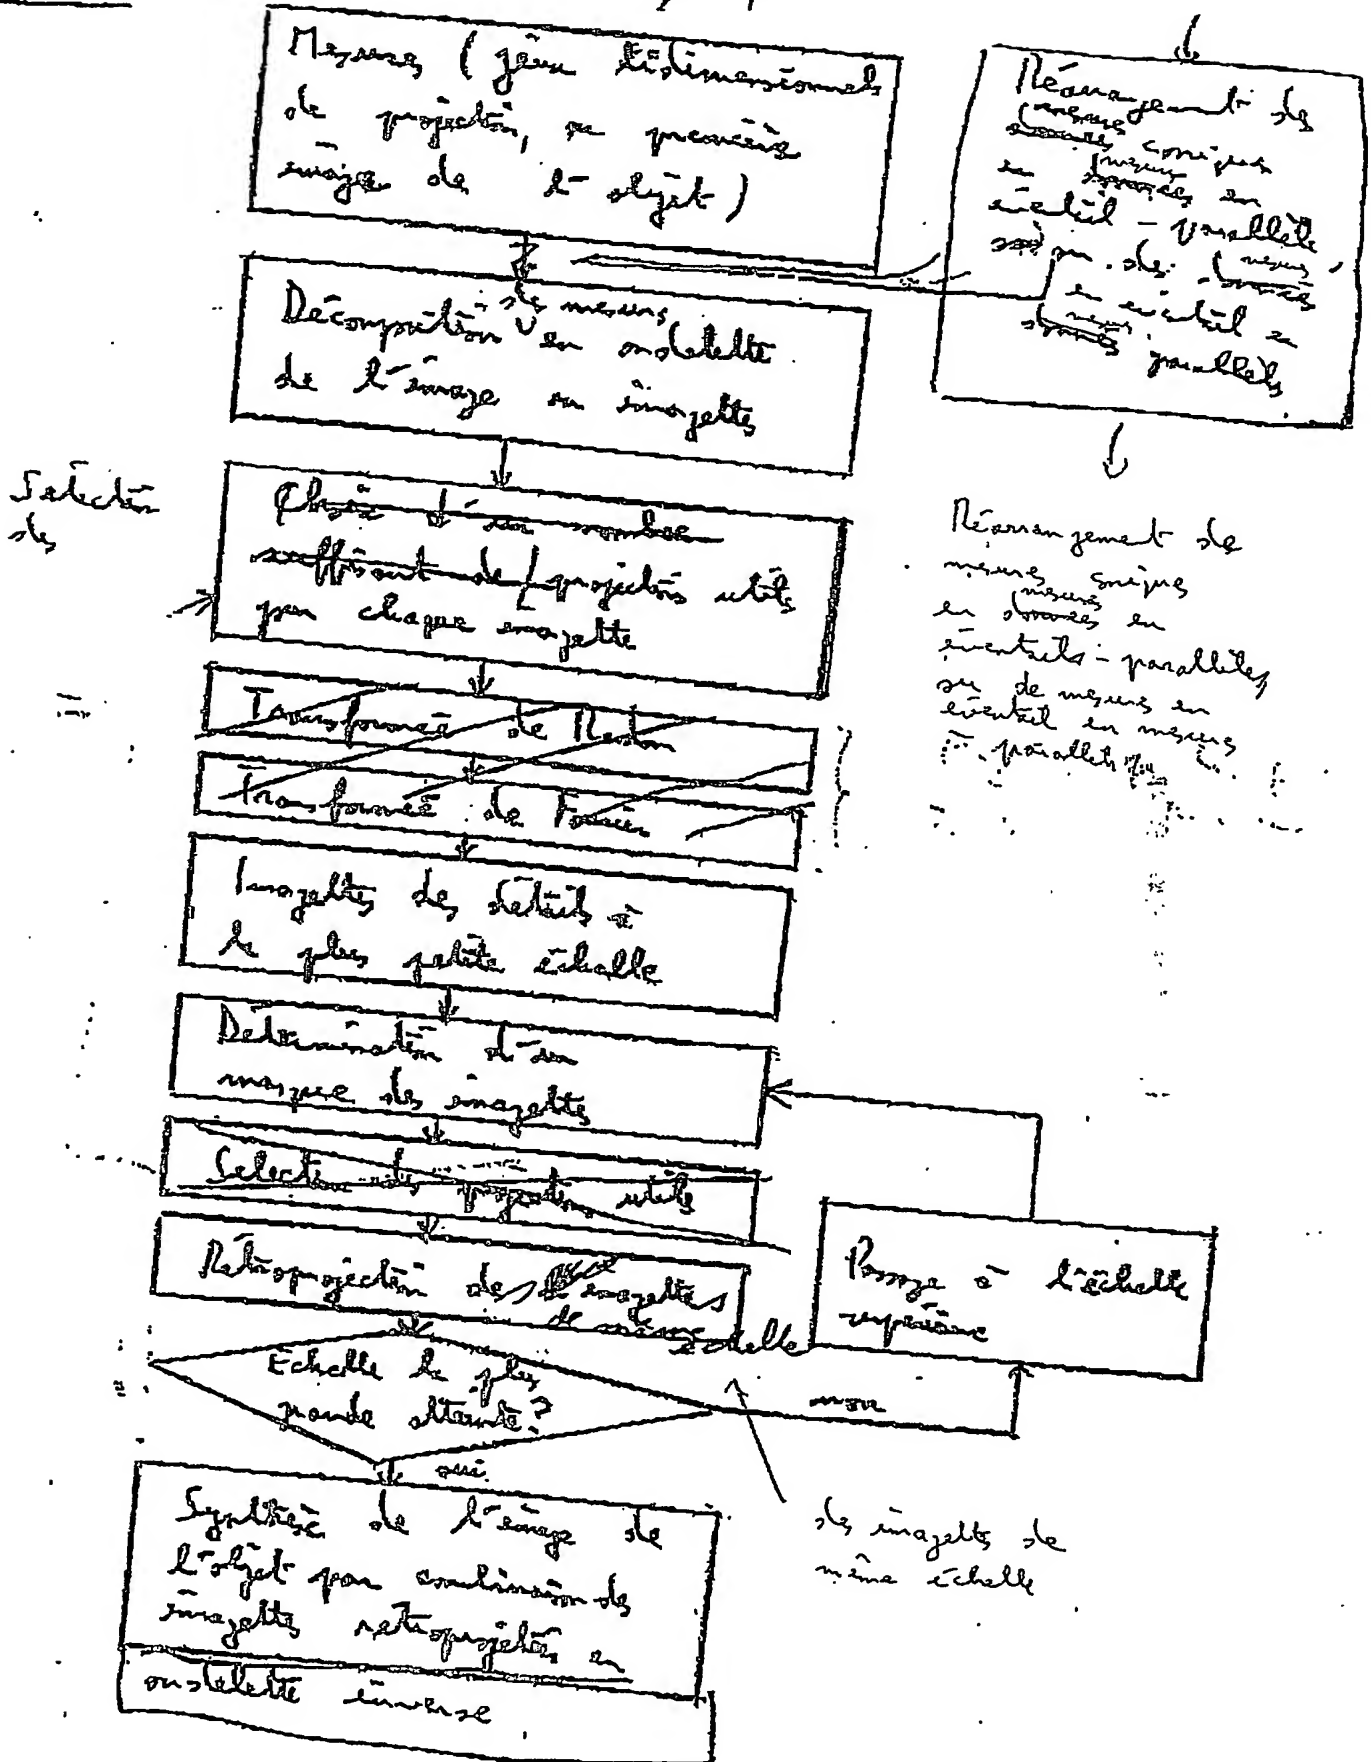 Mesures (jeux bidimensionnels
de projection, ou première
image de l'objet)
Réarrangement des
mesures
données coniques
mesures
en données en
éventail - parallèle,
ou des données
mesures
en éventail en
mesures
données parallèles
des mesures
Décomposition en ondelette
de l'image en imagettes
Sélection
des
Choix d'un nombre
suffisant de projections utiles
pour chaque imagette
Réarrangement de
mesures coniques
mesures
en données en
éventails - parallèles,
ou de mesures en
éventail en mesures
parallèles
Transformée de Radon
Transformée de Fourier
Imagettes des détails à
la plus petite échelle
Détermination d'un
masque des imagettes
Sélection des projections utiles
Rétroprojection des imagettes
de même échelle
Passage à l'échelle
supérieure
Échelle la plus
grande atteinte?
non
oui
Synthèse de l'image de
l'objet par combinaison des
imagettes rétroprojetées en
ondelette inverse
des imagettes de
même échelle